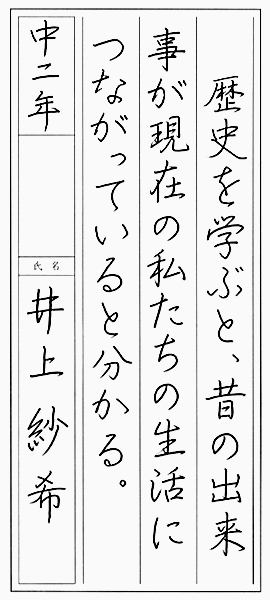 歴史を学ぶと、昔の出来
事が現在の私たちの生活に
つながっていると分かる。
中二年
氏名
井上紗希